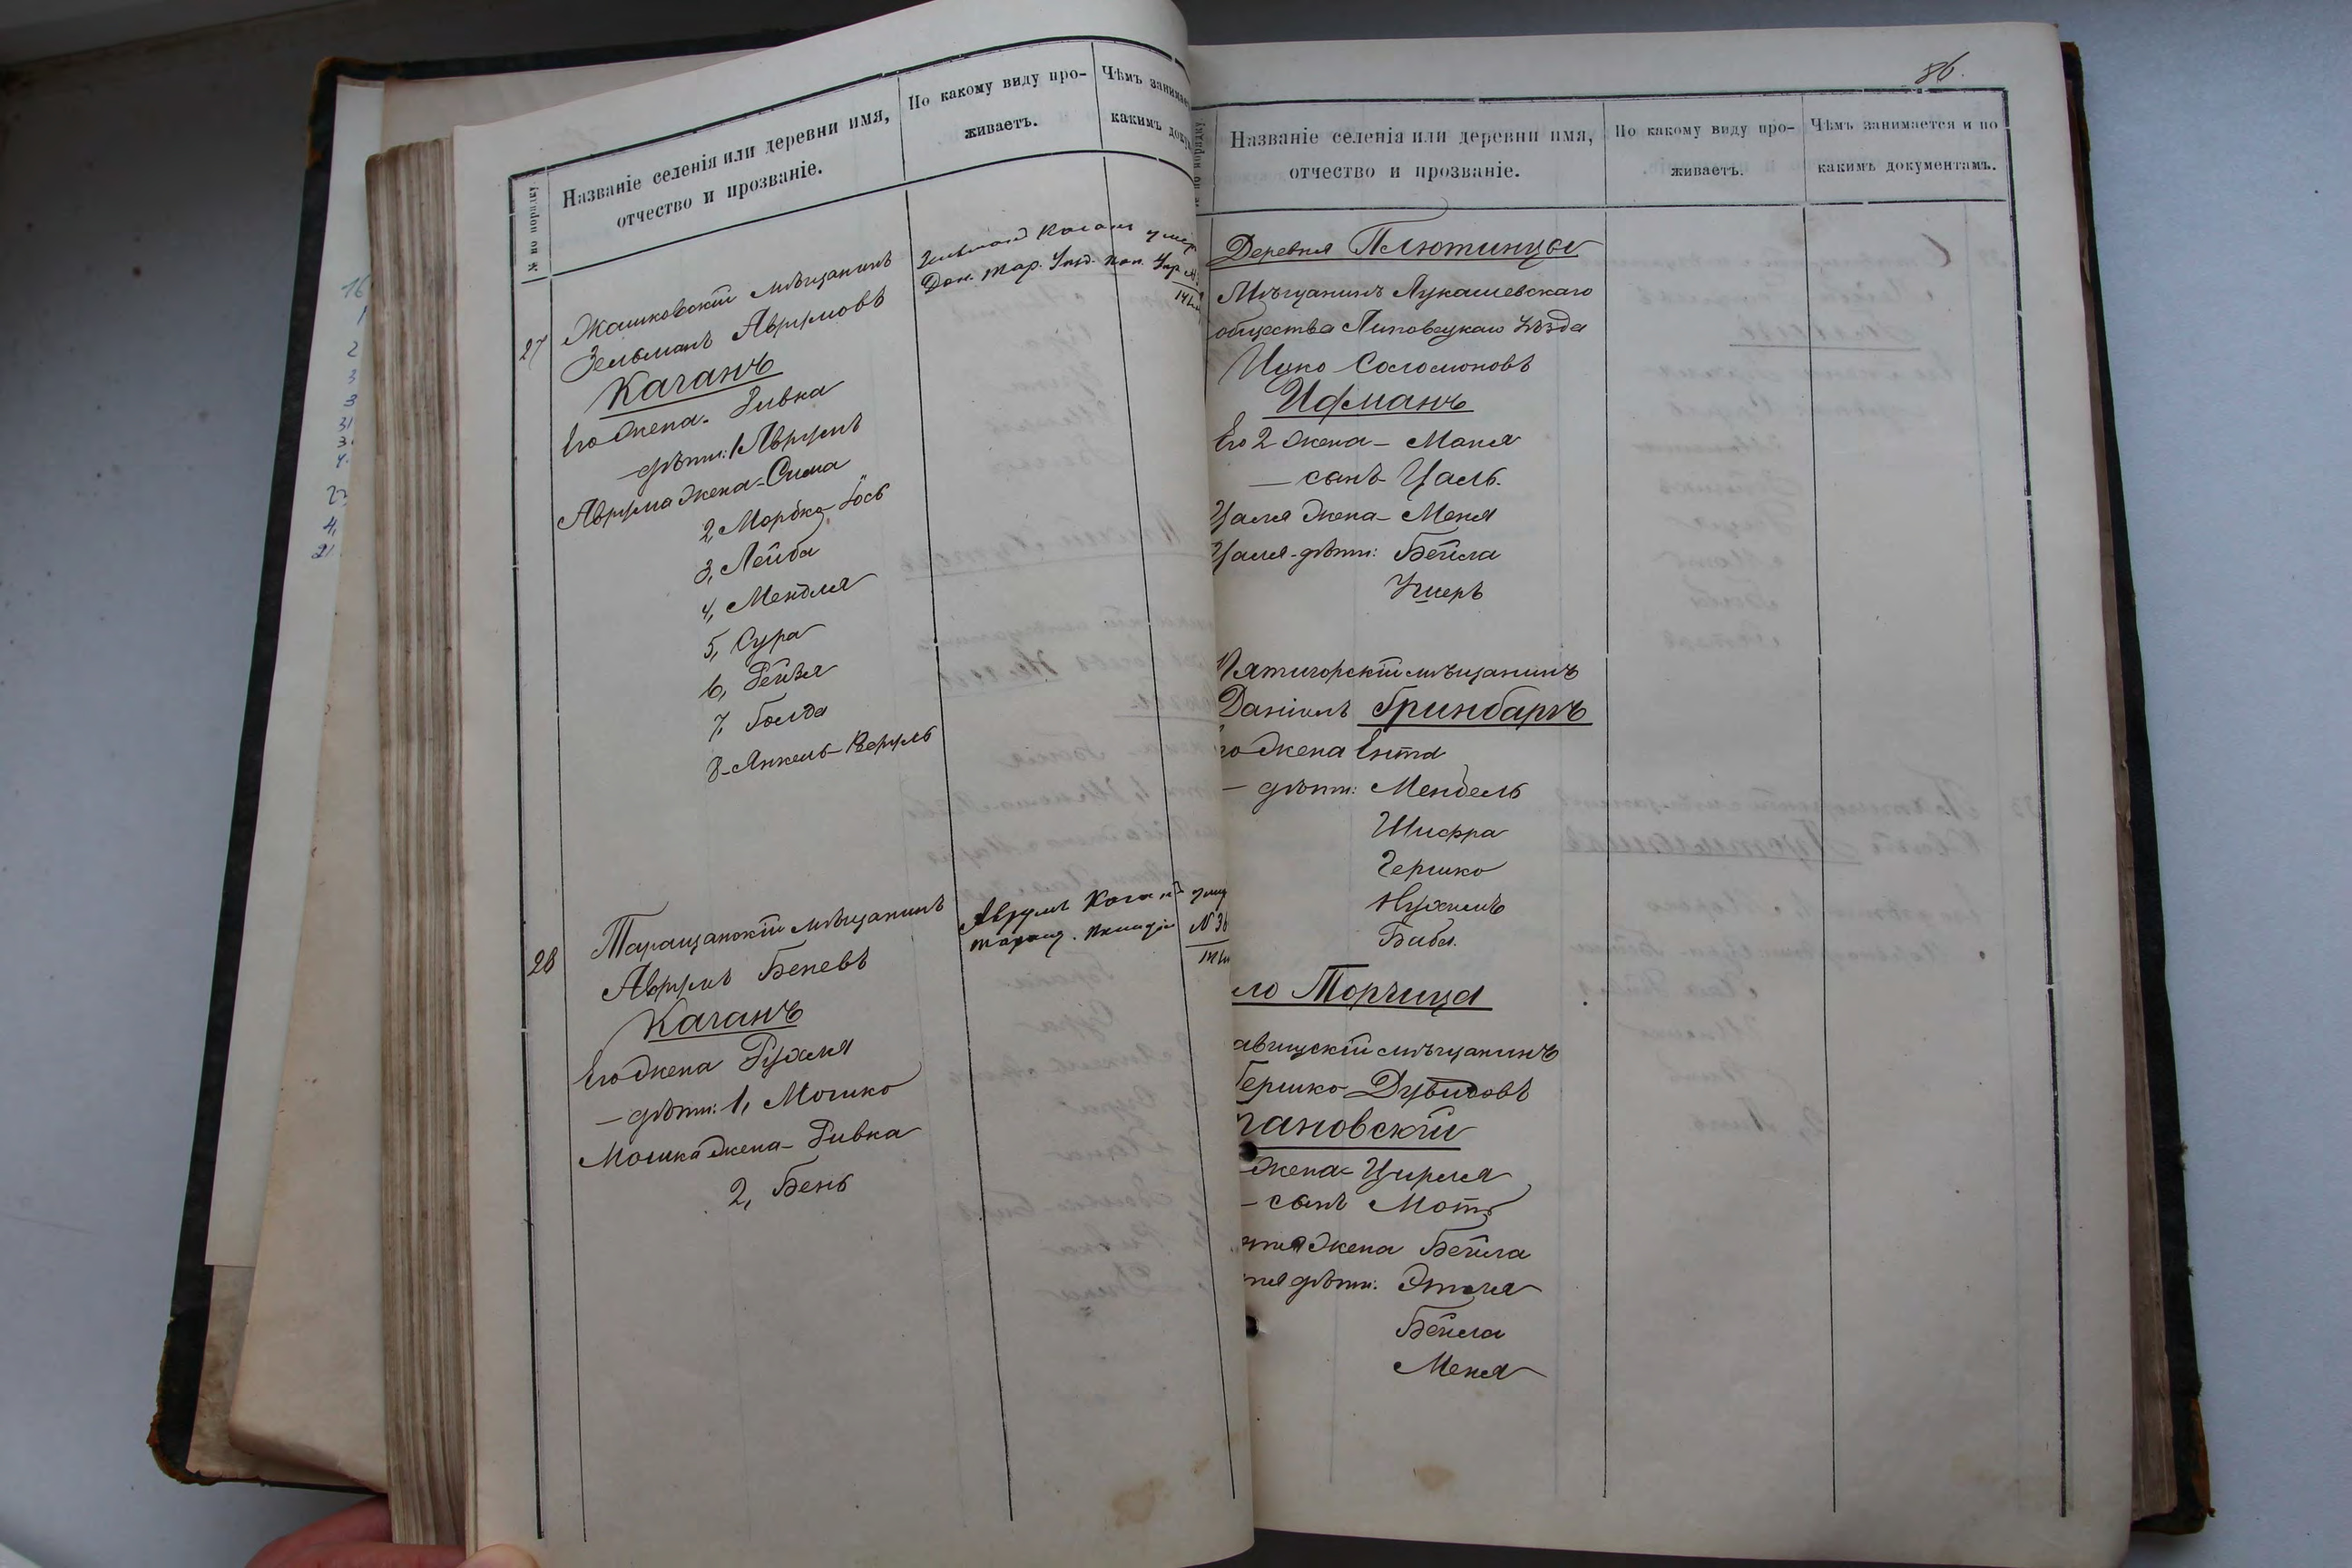 № по порядку
Названіе селенія или деревни имя,
отчество и прозваніе.
По какому виду про-
живаетъ.
Чѣмъ занимае
какимъ доку
27
Жашковскій мѣщанинъ
Зельманъ Аврумовъ
Каганъ
Его жена - Ривка
- дѣти: 1 Аврумъ
Аврума жена - Сима
2, Мордко-Іось
3, Лейба
4, Мендля
5, Сура
6, Рейзя
7, Голда
8 - Янкель-
Зельманъ Каганъ умер
Дон. Тар. Уѣзд. Пол. Упр
28
Таращанскій мѣщанинъ
Аврумъ Беневъ
Каганъ
Его жена Рухля
- дѣти: 1, Мошко
Мошка жена - Ривка
2, Бень
Аврумъ Каганъ умер
№ 36
86.
Названіе селенія или деревни имя,
отчество и прозваніе.
По какому виду про-
живаетъ.
Чѣмъ занимается и по
какимъ документамъ.
Деревня Плютинцы
Мѣщанинъ Лукашевскаго
общества Липовецкаго уѣзда
Ицко Соломоновъ
Ицманъ
Его 2 жена - Маня
- сынъ Цаль.
Цаля жена - Меня
Цаля - дѣти: Бейла
Ушеръ
Пятигорскій мѣщанинъ
Даніилъ Гринбаргъ
го жена Ента
- дѣти: Мендель
Шифра
Гершко
Нухимъ
Баба.
ло Торчица
авищскій мѣщанинъ
Гершко Дувидовъ
гановскій
жена - Цирля
- сынъ Мотъ
тя жена Бейла
тя дѣти: Этля
Бейла
Меня